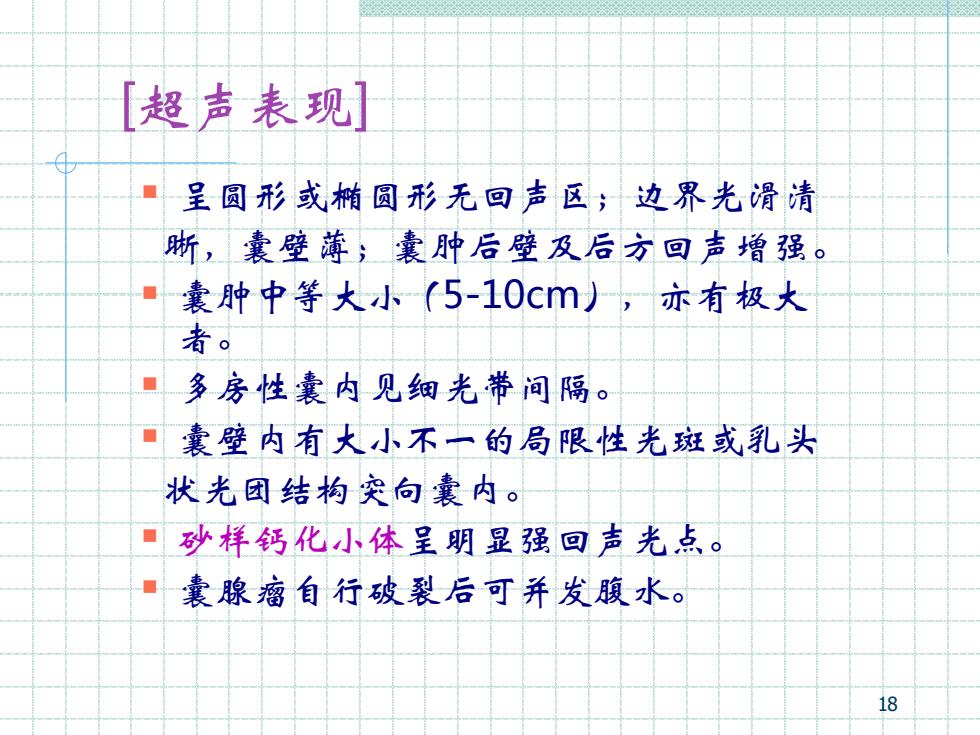 [超声表现]
呈圆形或椭圆形无回声区；边界光滑清
晰，囊壁薄；囊肿后壁及后方回声增强。
囊肿中等大小（5-10cm），亦有极大
者。
多房性囊内见细光带间隔。
囊壁内有大小不一的局限性光斑或乳头
状光团结构突向囊内。
砂样钙化小体呈明显强回声光点。
囊腺瘤自行破裂后可并发腹水。
18